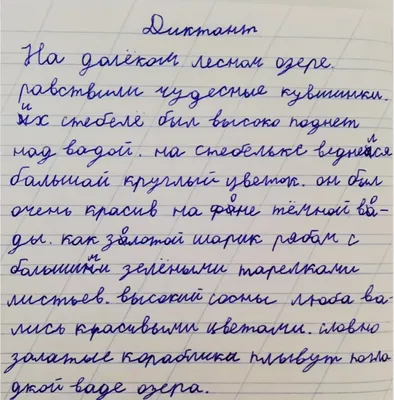 Диктант
На далёком лесном озере.
равствили чудесные кувшинки.
их стебеле был высоко поднет
над вадой. на стебельке виднелся
балшай круглый цветок. он был
очень красив на фоне тёмной во-
ды. как золотой шарик рябам с
балшими зелёными тарелками
листьев. высокий сосны люба ва-
лись красивыми цветами. словно
залатые кораблики плывут погла
дкой ваде озера.